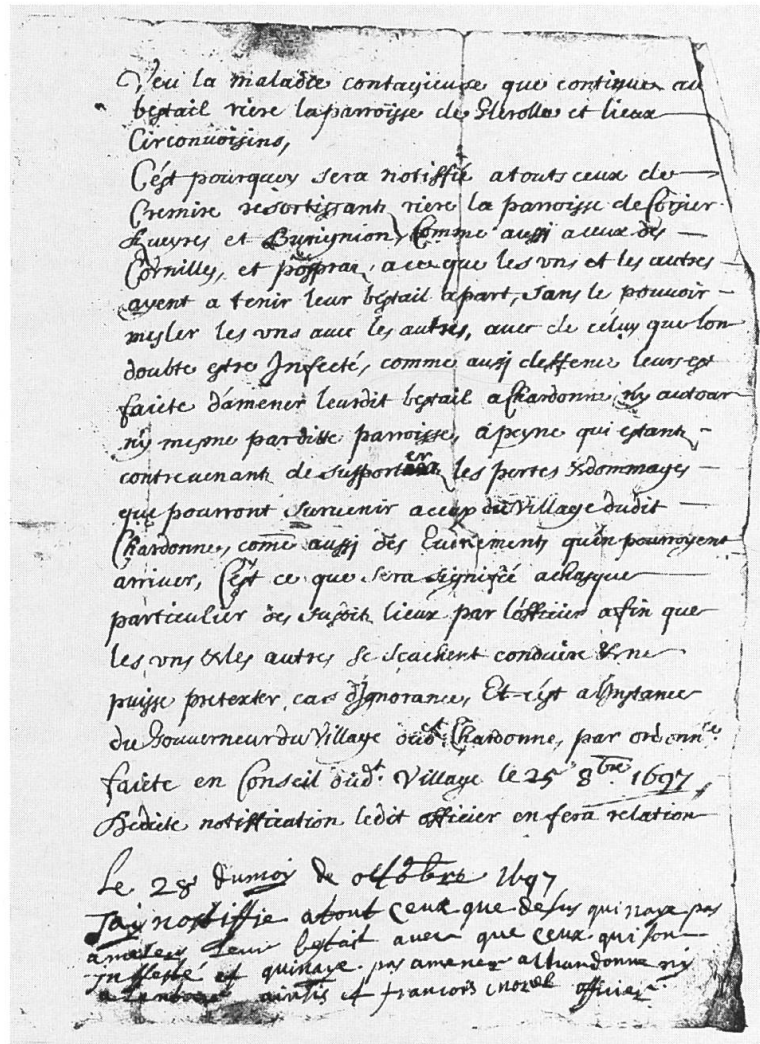 Veu la maladie contagieuse que continue au
bestail riere la parroisse de Glerolle et lieux
Circonvoisins,
C'est pourquoy sera notiffié a touts ceux de
Cremire resortissants riere la parroisse de Corsier
Fueyres et Burignion, Comme aussi a ceux des
Cornilles, et posprai, a ce que les uns et les autres
ayent a tenir leur bestail apart, sans le pouvoir
mesler les uns avec les autres, avec de celuy que lon
doubte estre Infecté, comme aussi deffence leurs est
faicte d'amener leurdit bestail a Chardonne, ny autour
ny mesme par ditte parroisse, a peyne qui estants
contrevenants de supporter les pertes & dommages
que pourront survenir a ceux du Village dudit
Chardonne, come aussi des Evenements qu'en pourroyent
arriver, C'est ce que sera signifié a chasque
particulier des susdits lieux par l'officier afin que
les uns & les autres se scachent conduire & ne
puisse pretexter cas d'Ignorance, Et c'est a l'Instance
du Gouverneur du Village dud.t Chardonne, par ordonn.ce
faicte en Conseil dud.t Village le 25 8bre 1697
De dicte notiffication ledit officier en fera relation
Le 28 du moy de octobre 1697
Jay nostiffie a tout ceux que desus qui naye pas
a meler leur bestait avec que ceux qui son
Inffecté et qui naye pas amener a Chardonne ny
ainsis et francois morel officier